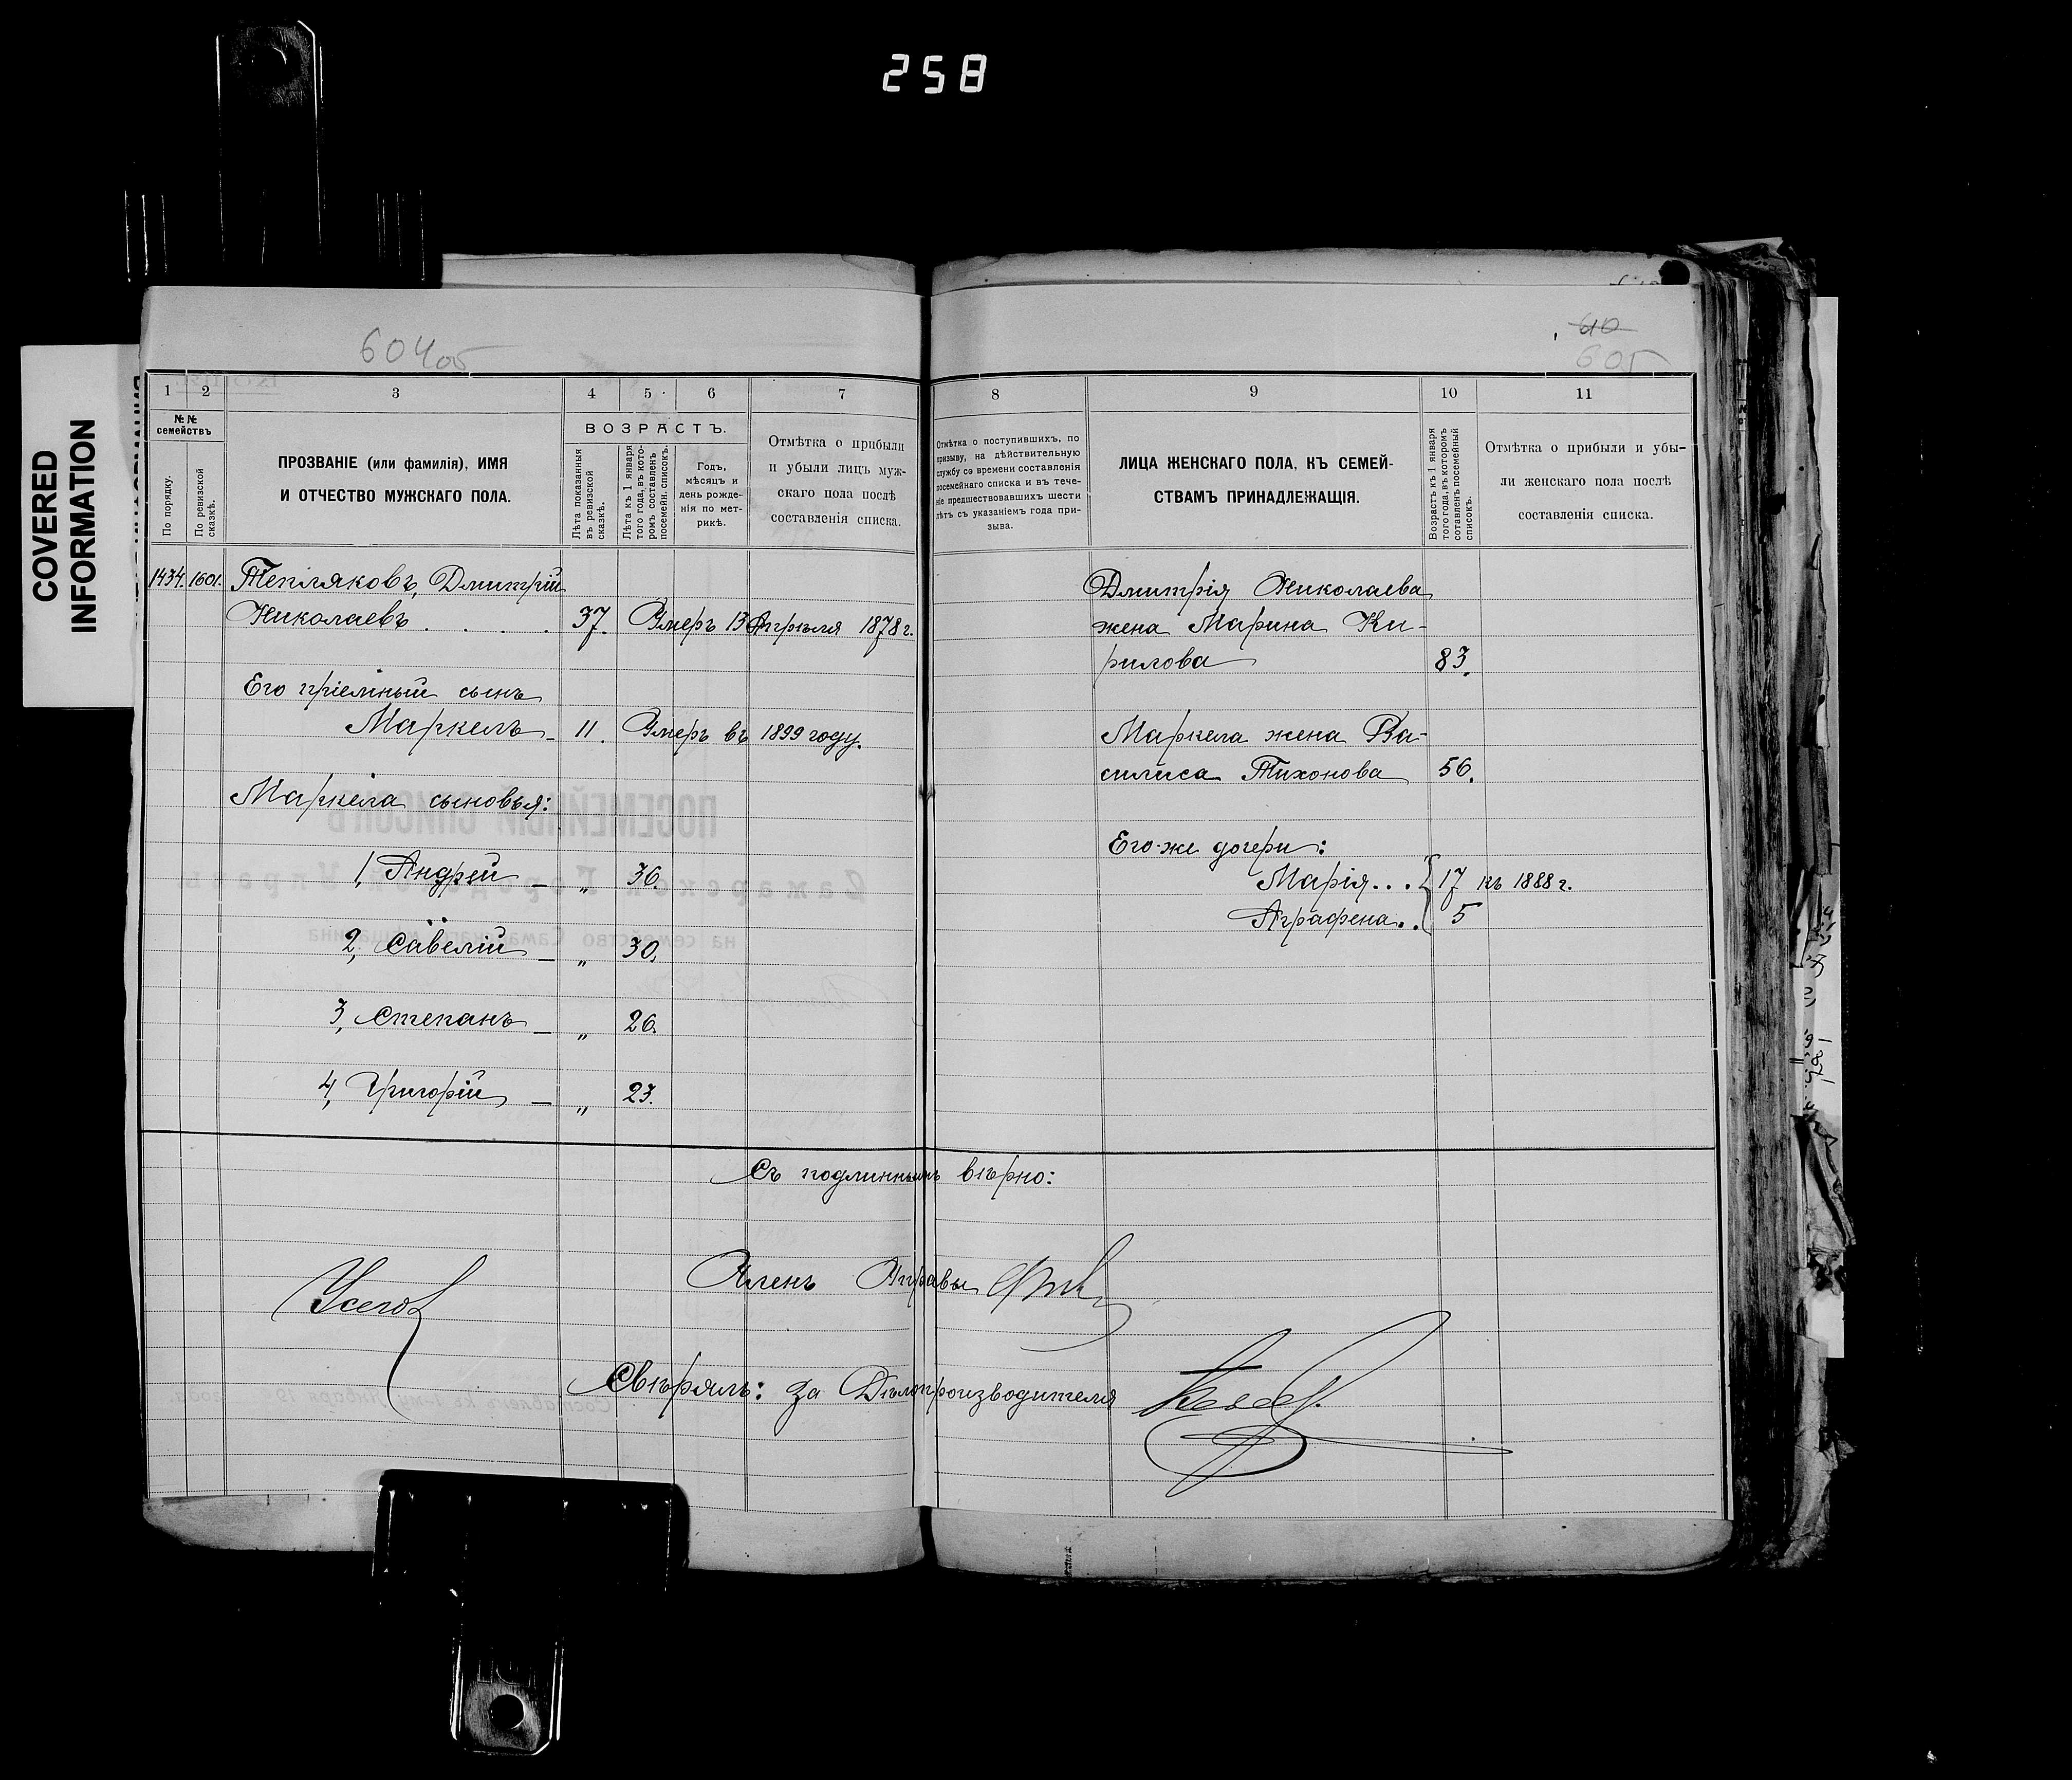 258
COVERED
INFORMATION
604об
610
605
1 2 3 4 5 6 7
№№ семействъ
По порядку.
По ревизской сказкѣ.
ПРОЗВАНІЕ (или фамилія), ИМЯ
И ОТЧЕСТВО МУЖСКАГО ПОЛА.
ВОЗРАСТЪ.
Лѣта показанныя въ ревизской сказкѣ.
Лѣта къ 1 января того года, въ которомъ составленъ посемейн. списокъ.
Годъ, мѣсяцъ и день рожденія по метрикѣ.
Отмѣтка о прибыли
и убыли лицъ муж-
скаго пола послѣ
составленія списка.
1434. 1601. Тепляковъ, Дмитрій
Николаевъ . . . . . 37. Умеръ 13 Апрѣля 1878 г.
Его пріемный сынъ
Маркелъ 11. Умеръ въ 1899 году.
Маркела сыновья:
1, Андрей — „ 36.
2, Савелій — „ 30.
3, Степанъ — „ 26.
4, Григорій — „ 23.
8 9 10 11
Отмѣтка о поступившихъ, по
призыву, на дѣйствительную
службу со времени составленія
посемейнаго списка и въ тече-
ніе предшествовавшихъ шести
лѣтъ съ указаніемъ года при-
зыва.
ЛИЦА ЖЕНСКАГО ПОЛА, КЪ СЕМЕЙ-
СТВАМЪ ПРИНАДЛЕЖАЩІЯ.
Возрастъ къ 1 января того года, въ которомъ сотавленъ посемейный списокъ.
Отмѣтка о прибыли и убы-
ли женскаго пола послѣ
составленія списка.
Дмитрія Николаева
жена Марина Ки-
рилова 83.
Маркела жена Ва-
силиса Тихонова 56.
Его-же дочери:
Марія... 17 къ 1888 г.
Аграфена.. 5
Съ подлиннымъ вѣрно:
Членъ Управы
Свѣрялъ: За Дѣлопроизводителя